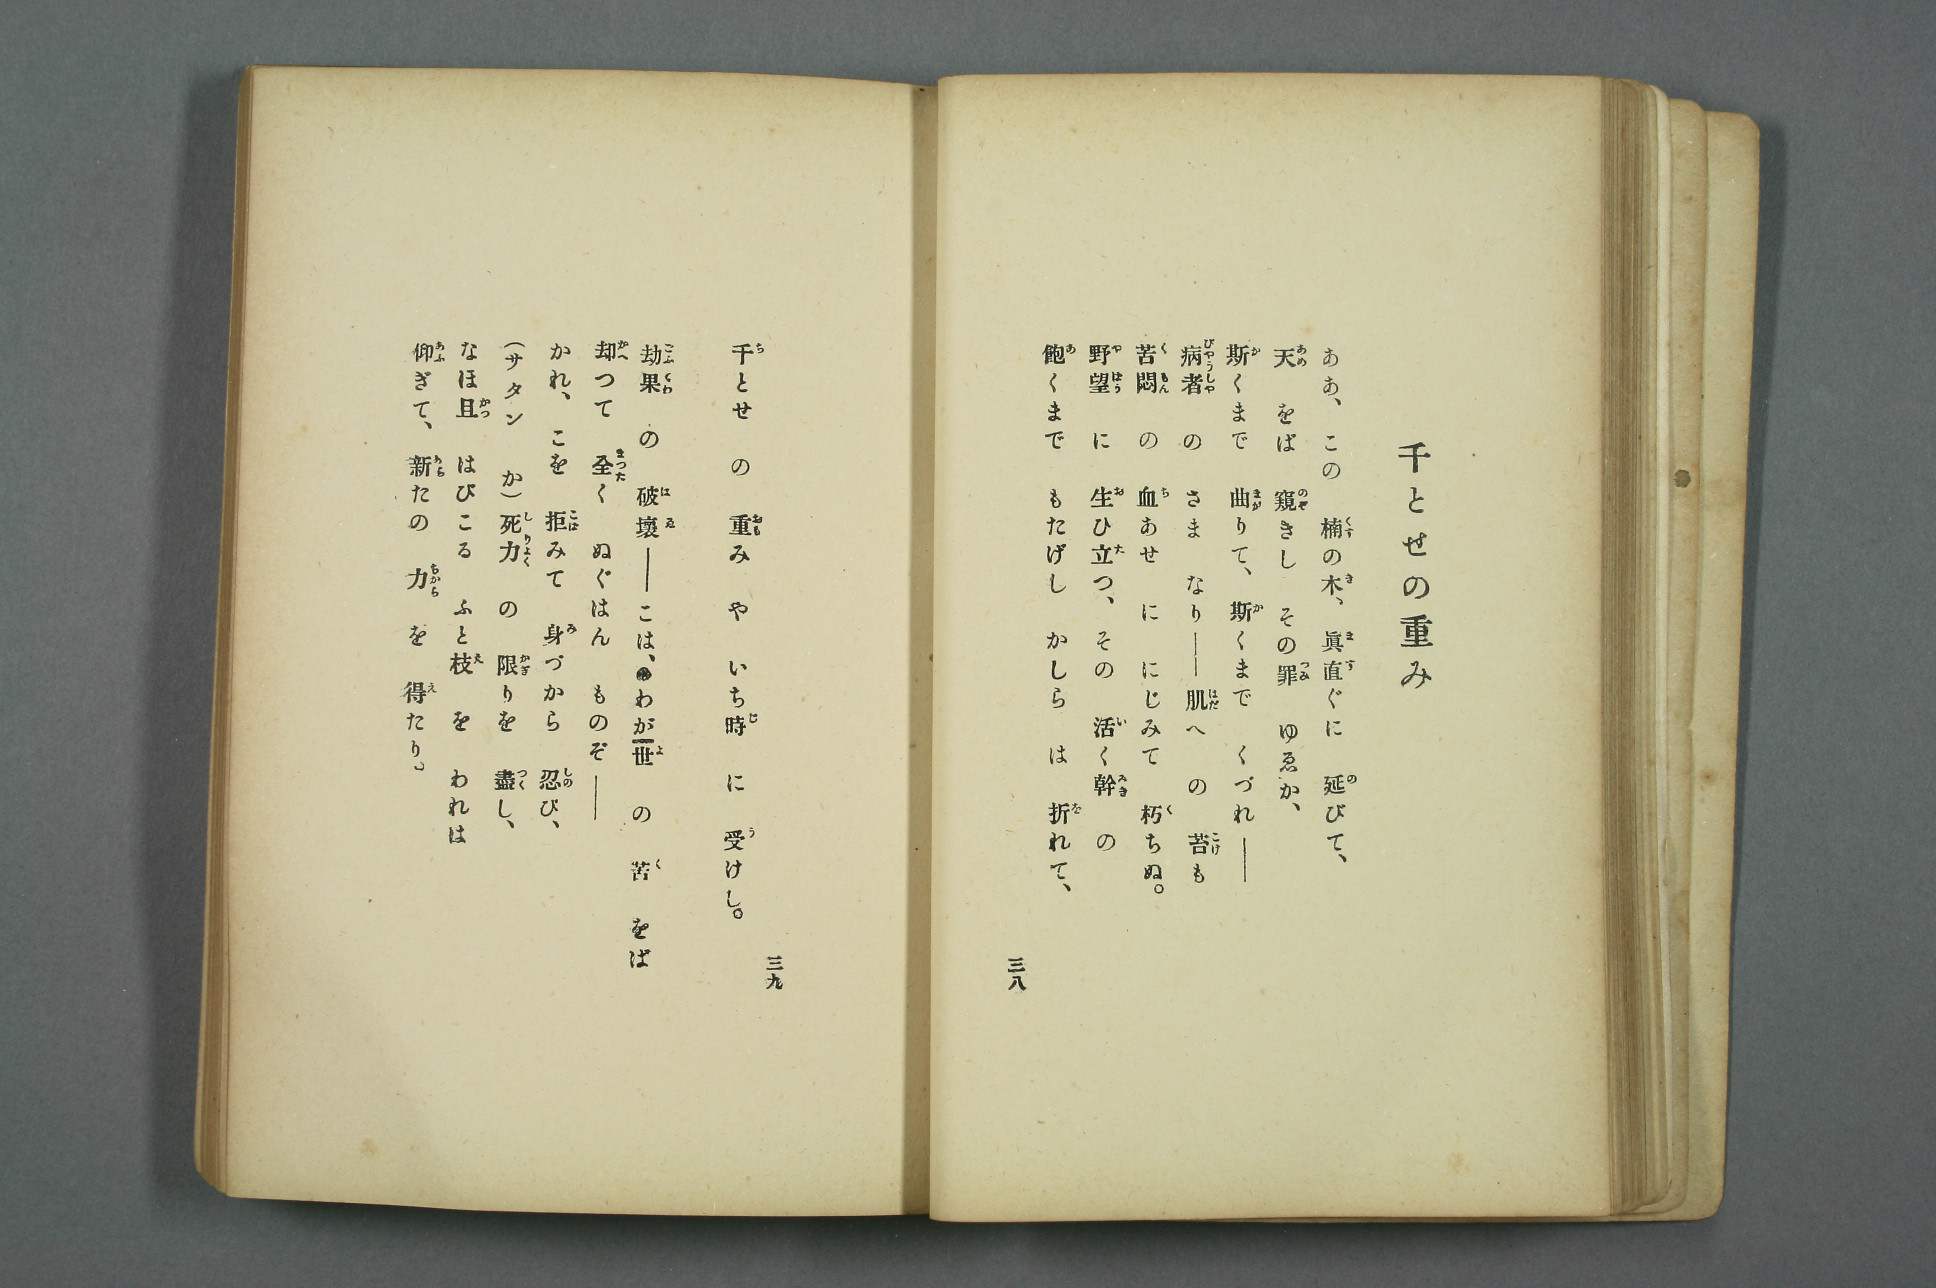 千とせの重み
ああ、この 楠の木、眞直ぐに 延びて、
天 をば 窺きし その罪 ゆゑか、
斯くまで 曲りて、斯くまで くづれ――
病者 の さま なり――肌へ の 苔も
苦悶 の 血あせ に にじみて 朽ちぬ。
野望 に 生ひ立つ、その 活く幹 の
飽くまで もたげし かしら は 折れて、
三八
千とせ の 重み や いち時 に 受けし。
劫果 の 破壞――こは、わが世 の 苦 をば
却つて 全く ぬぐはん ものぞ――
かれ、こを 拒みて 身づから 忍び、
(サタン か)死力 の 限りを 盡し、
なほ且 はびこる ふと枝 を われは
仰ぎて、新たの 力 を 得たり。
三九